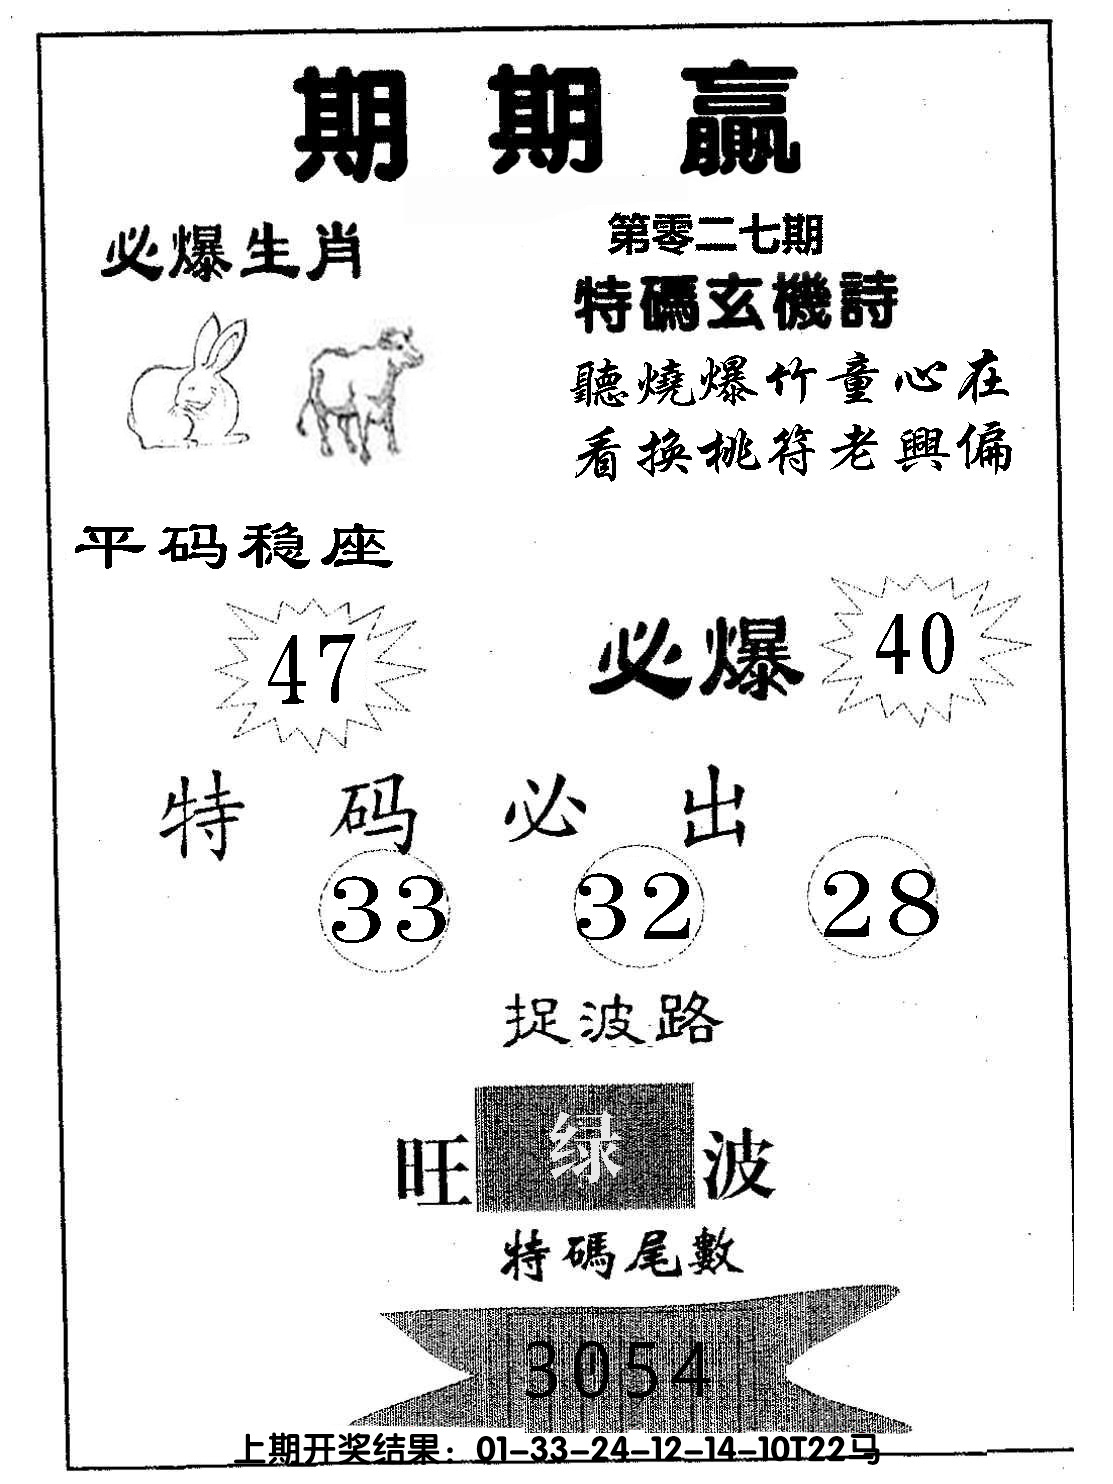 期期赢
必爆生肖
第零二七期
特碼玄機詩
聽燒爆竹童心在
看換桃符老興偏
平码稳座
47
必爆 40
特码必出
33 32 28
捉波路
旺 绿 波
特碼尾數
3054
上期开奖结果：01-33-24-12-14-10T22马